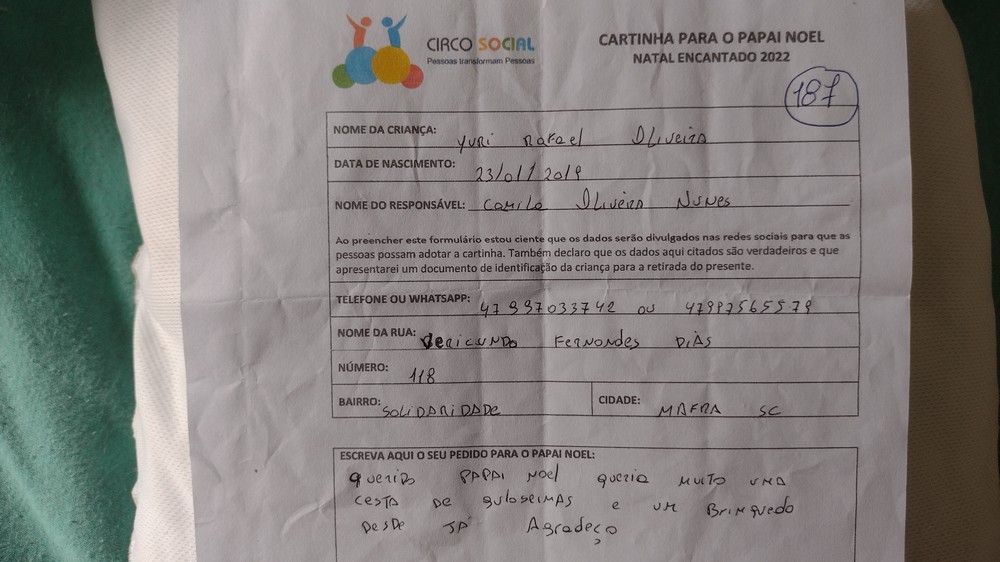 CIRCO SOCIAL
Pessoas transformam Pessoas
CARTINHA PARA O PAPAI NOEL
NATAL ENCANTADO 2022
187
NOME DA CRIANÇA: Yuri Rafael Oliveira
DATA DE NASCIMENTO: 23/01/2019
NOME DO RESPONSÁVEL: Camila Oliveira Nunes
Ao preencher este formulário estou ciente que os dados serão divulgados nas redes sociais para que as
pessoas possam adotar a cartinha. Também declaro que os dados aqui citados são verdadeiros e que
apresentarei um documento de identificação da criança para a retirada do presente.
TELEFONE OU WHATSAPP: 47 997033742 ou 47997565579
NOME DA RUA: Fernandes DiAs
NÚMERO: 118
BAIRRO: SOLiDARiDADe
CIDADE: MAFRA SC
ESCREVA AQUI O SEU PEDIDO PARA O PAPAI NOEL:
Querido PAPAI Noel queria muito uma
cesta de guloseimas e um Brinquedo
Desde JÁ Agradeço